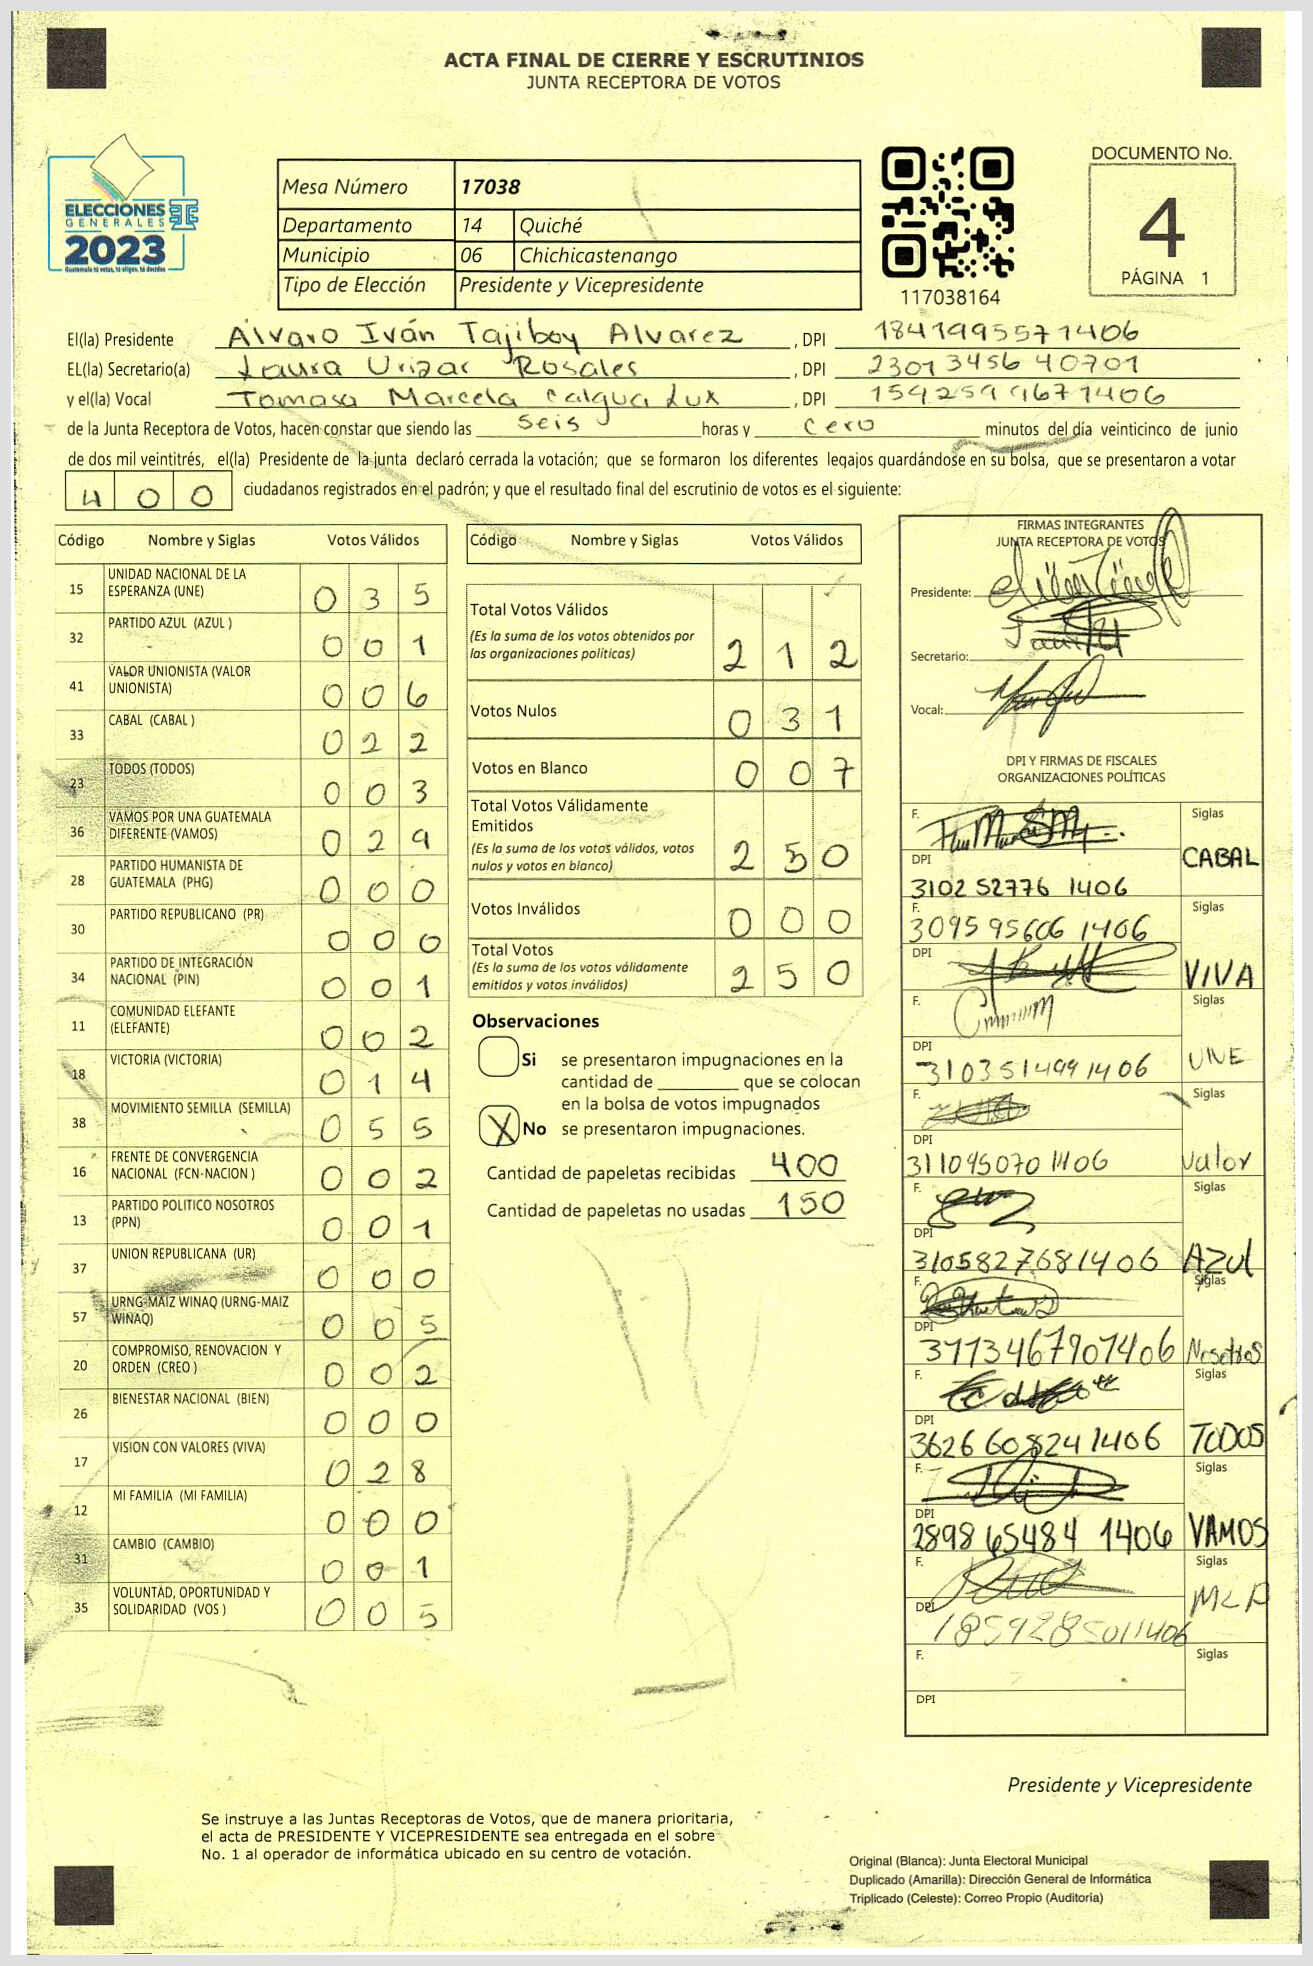 ACTA FINAL DE CIERRE Y ESCRUTINIOS
JUNTA RECEPTORA DE VOTOS
ELECCIONES
GENERALES
2023
Guatemala tú votas, tú eliges, tú decides
Mesa Número 17038
Departamento 14 Quiché
Municipio 06 Chichicastenango
Tipo de Elección Presidente y Vicepresidente
117038164
DOCUMENTO No.
4
PÁGINA 1
El(la) Presidente Alvaro Iván Tajiboy Alvarez, DPI 1841995571406
EL(la) Secretario(a) Laura Urizar Rosales, DPI 2301345640701
y el(la) Vocal Tomasa Marcela Calgua Lux, DPI 1542599671406
de la Junta Receptora de Votos, hacen constar que siendo las seis horas y cero minutos del día veinticinco de junio
de dos mil veintitrés, el(la) Presidente de la junta declaró cerrada la votación; que se formaron los diferentes legajos guardándose en su bolsa, que se presentaron a votar
400 ciudadanos registrados en el padrón; y que el resultado final del escrutinio de votos es el siguiente:
Código Nombre y Siglas Votos Válidos
15 UNIDAD NACIONAL DE LA ESPERANZA (UNE) 035
32 PARTIDO AZUL (AZUL ) 001
41 VALOR UNIONISTA (VALOR UNIONISTA) 006
33 CABAL (CABAL ) 022
23 TODOS (TODOS) 003
36 VAMOS POR UNA GUATEMALA DIFERENTE (VAMOS) 029
28 PARTIDO HUMANISTA DE GUATEMALA (PHG) 000
30 PARTIDO REPUBLICANO (PR) 000
34 PARTIDO DE INTEGRACIÓN NACIONAL (PIN) 001
11 COMUNIDAD ELEFANTE (ELEFANTE) 002
18 VICTORIA (VICTORIA) 014
38 MOVIMIENTO SEMILLA (SEMILLA) 055
16 FRENTE DE CONVERGENCIA NACIONAL (FCN-NACION ) 002
13 PARTIDO POLITICO NOSOTROS (PPN) 001
37 UNION REPUBLICANA (UR) 000
57 URNG-MAIZ WINAQ (URNG-MAIZ WINAQ) 005
20 COMPROMISO, RENOVACION Y ORDEN (CREO ) 002
26 BIENESTAR NACIONAL (BIEN) 000
17 VISION CON VALORES (VIVA) 028
12 MI FAMILIA (MI FAMILIA) 000
31 CAMBIO (CAMBIO) 001
35 VOLUNTAD, OPORTUNIDAD Y SOLIDARIDAD (VOS ) 005
Código Nombre y Siglas Votos Válidos
Total Votos Válidos
(Es la suma de los votos obtenidos por
las organizaciones políticas) 212
Votos Nulos 031
Votos en Blanco 007
Total Votos Válidamente
Emitidos
(Es la suma de los votos válidos, votos
nulos y votos en blanco) 250
Votos Inválidos 000
Total Votos
(Es la suma de los votos válidamente
emitidos y votos inválidos) 250
Observaciones
Si se presentaron impugnaciones en la
cantidad de ________ que se colocan
en la bolsa de votos impugnados
X No se presentaron impugnaciones.
Cantidad de papeletas recibidas 400
Cantidad de papeletas no usadas 150
FIRMAS INTEGRANTES
JUNTA RECEPTORA DE VOTOS
Presidente:
Secretario:
Vocal:
DPI Y FIRMAS DE FISCALES
ORGANIZACIONES POLÍTICAS
F. Siglas
DPI CABAL
3102 52776 1406
F. Siglas
3095 95606 1406
DPI VIVA
F. Siglas
DPI UNE
3103514991406
F. Siglas
DPI
3110950701406 Valor
F. Siglas
DPI
3105827681406 Azul
F. Siglas
DPI
3113467901406 Nosotros
F. Siglas
DPI
3626608241406 TODOS
F. Siglas
DPI
2898 65484 1406 VAMOS
F. Siglas
DPI MLP
1859285011406
F. Siglas
DPI
Presidente y Vicepresidente
Se instruye a las Juntas Receptoras de Votos, que de manera prioritaria,
el acta de PRESIDENTE Y VICEPRESIDENTE sea entregada en el sobre
No. 1 al operador de informática ubicado en su centro de votación.
Original (Blanca): Junta Electoral Municipal
Duplicado (Amarilla): Dirección General de Informática
Triplicado (Celeste): Correo Propio (Auditoría)